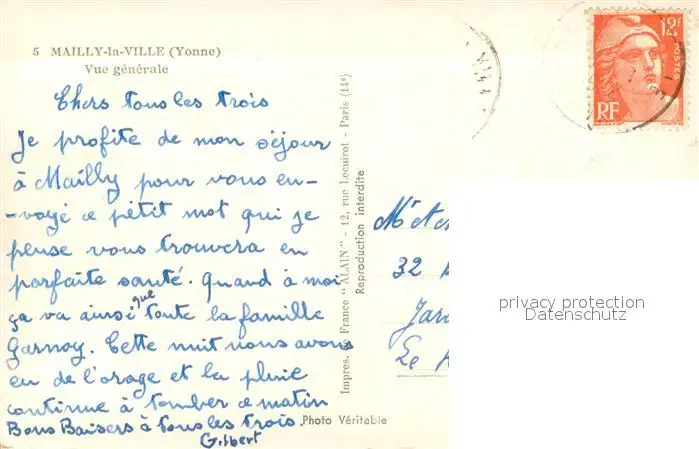 5 MAILLY-la-VILLE (Yonne)
Vue générale
Chers tous les trois
Je profite de mon séjour
à Mailly pour vous en-
-voyé ce petit mot qui je
pense vous trouvera en
parfaite santé. Quand à moi
ça va ainsi que toute la famille
Garnoy. Cette nuit nous avons
eu de l'orage et la pluie
continue à tomber ce matin
Bons Baisers à tous les trois
Gilbert
Photo Véritable
Impres. de France "ALAIN" - 12, rue Lecuirot - Paris (14e)
Reproduction interdite
12F
POSTES
RF
32
privacy protection
Datenschutz